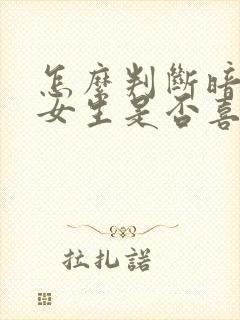 怎麼判斷暗
女生是否喜
拉扎諾